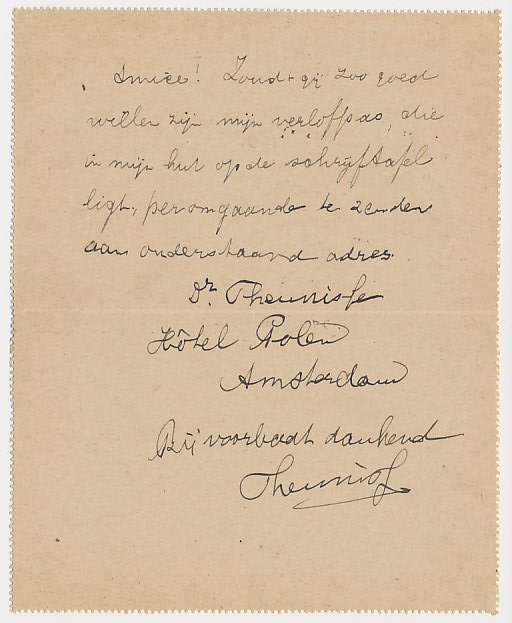 Amice! Zoudt gij zoo goed
willen zijn mijn verlofpas, die
in mijn hut op de schrijftafel
ligt, per omgaande te zenden
aan onderstaand adres.
Dr. Theunisse
Hôtel Polen
Amsterdam
Bij voorbaat dankend
Theuniss